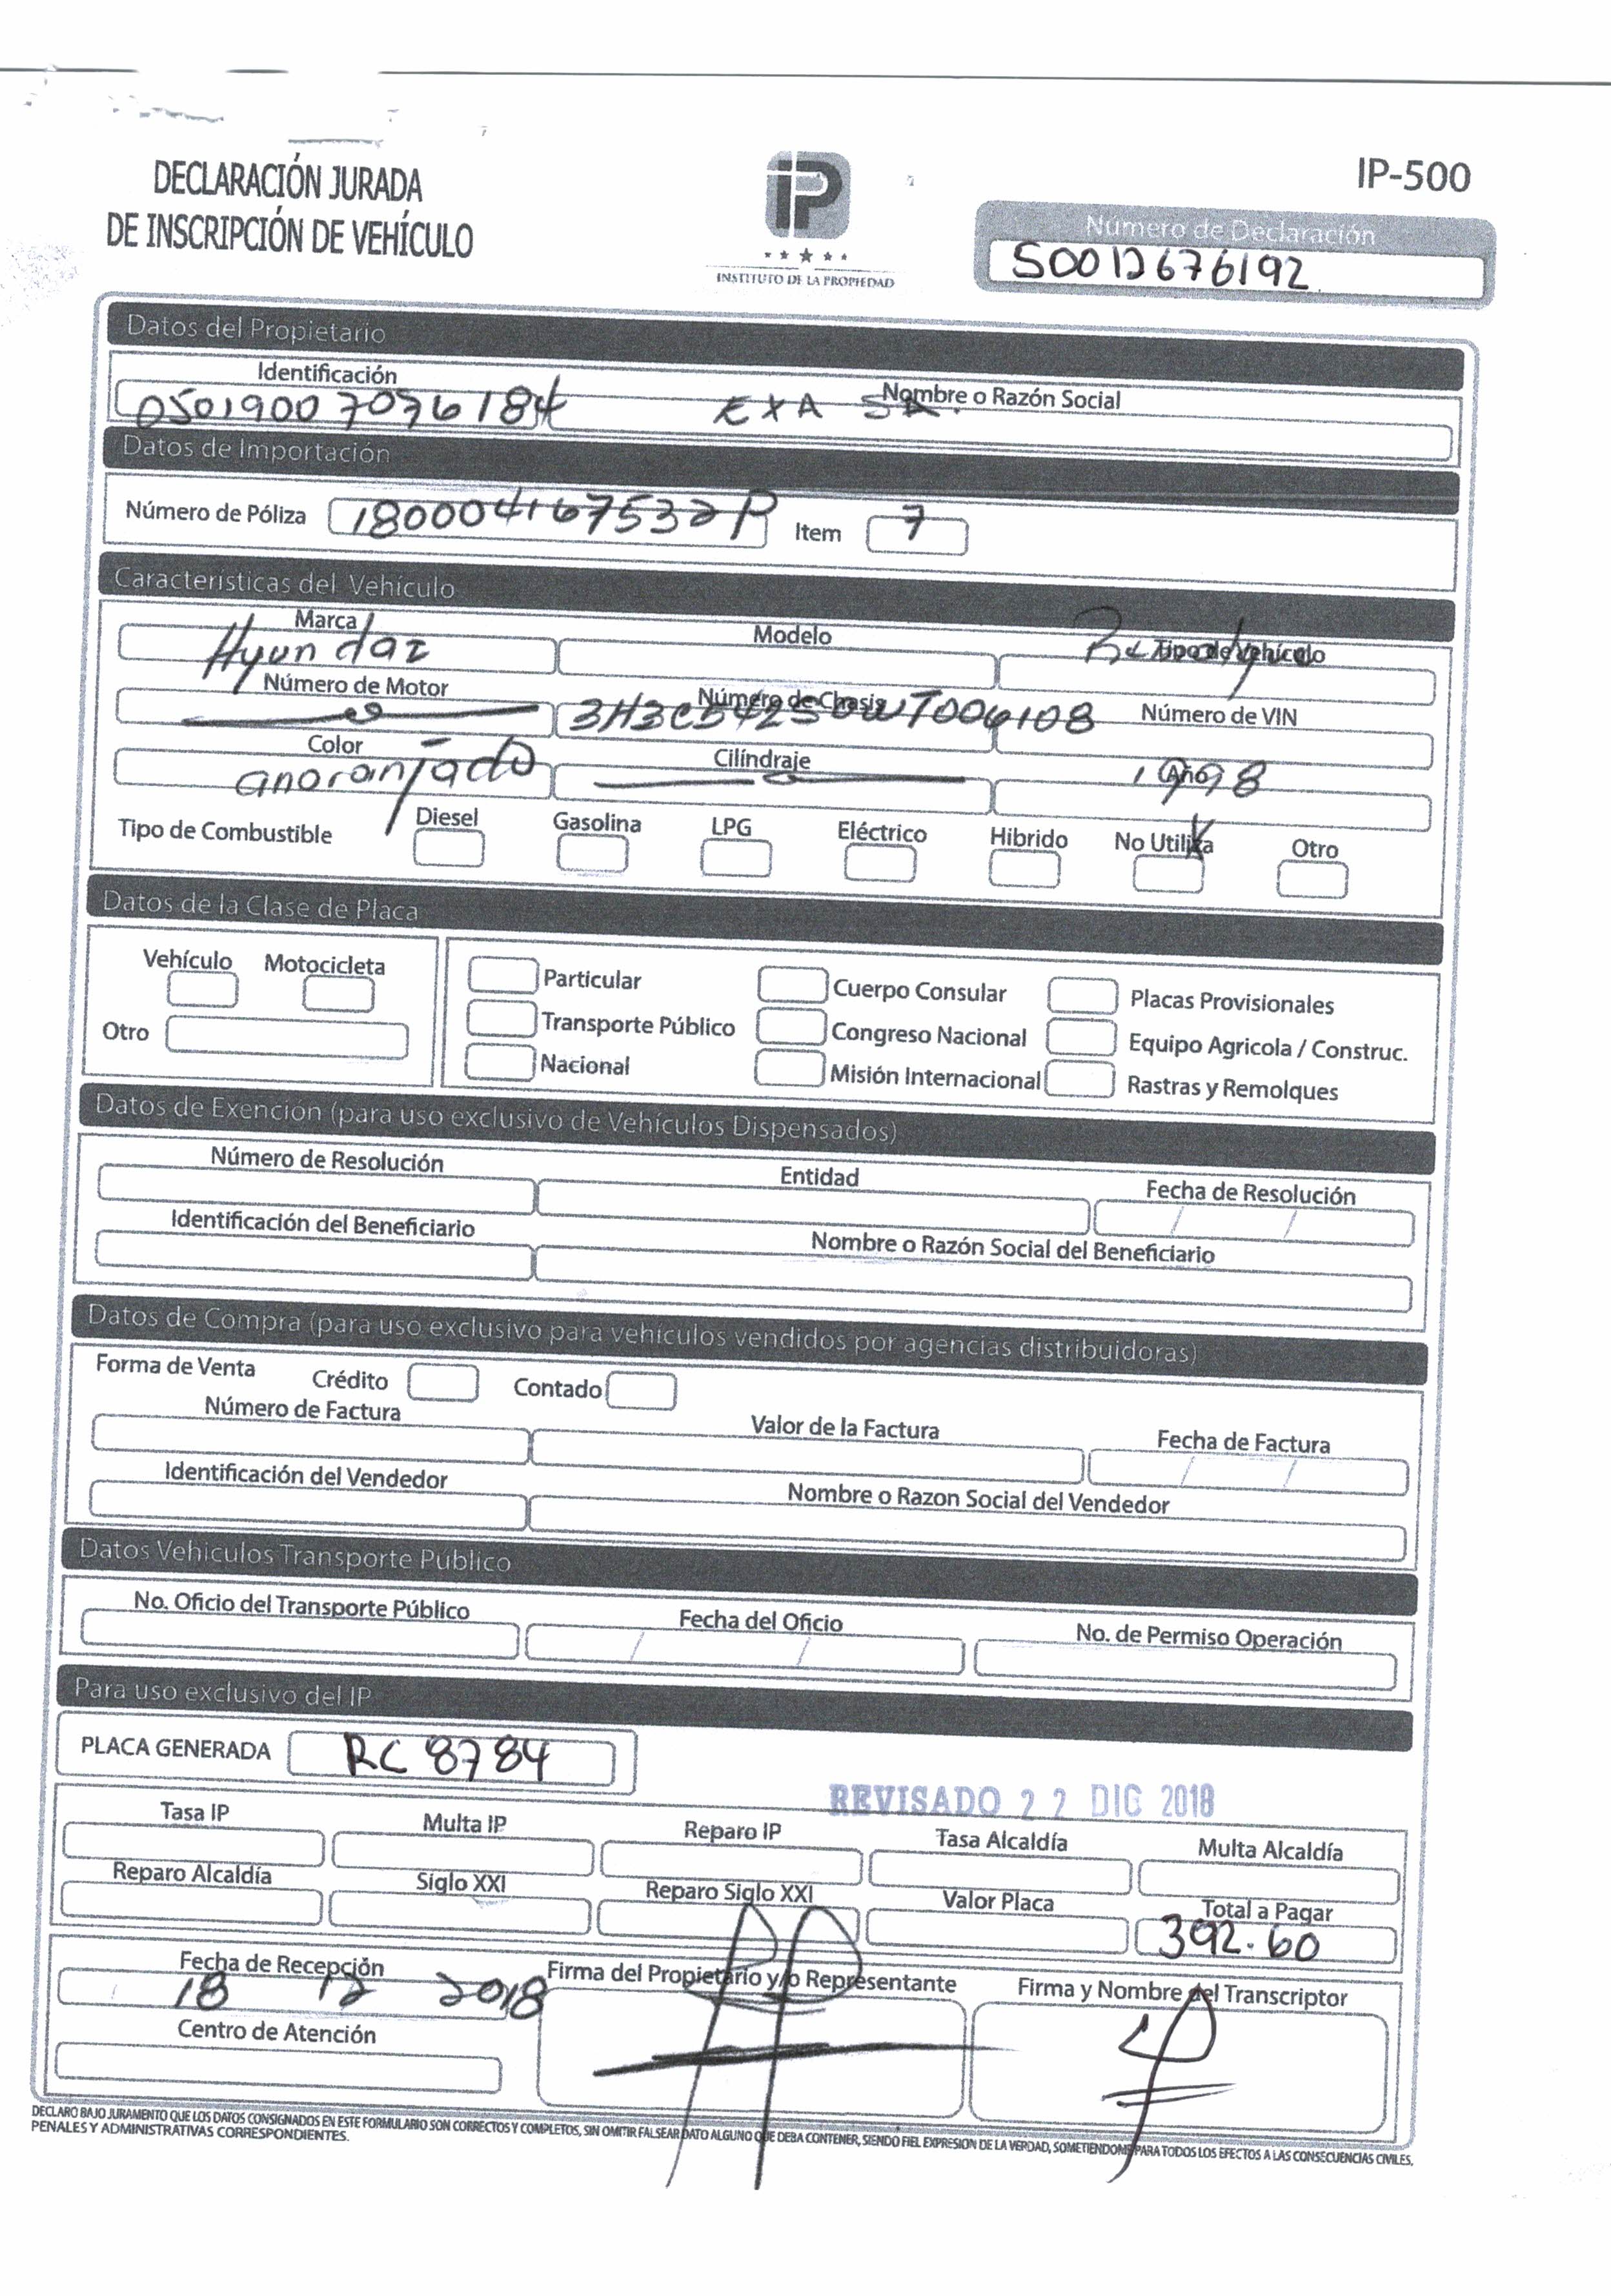 DECLARACIÓN JURADA
DE INSCRIPCIÓN DE VEHÍCULO
IP
INSTITUTO DE LA PROPIEDAD
IP-500
Número de Declaración
S0012676192
Datos del Propietario
Identificación Nombre o Razón Social
05019007076184 EXA SA.
Datos de Importación
Número de Póliza 180004167532P Item 7
Caracteristicas del Vehículo
Marca Modelo Tipo de Vehículo
Hyundai
Número de Motor Número de Chasis Número de VIN
Color Cilíndraje Año
anaranjado 1998
Tipo de Combustible Diesel Gasolina LPG Eléctrico Hibrido No Utiliza X Otro
Datos de la Clase de Placa
Vehículo Motocicleta
Otro
Particular Cuerpo Consular Placas Provisionales
Transporte Público Congreso Nacional Equipo Agricola / Construc.
Nacional Misión Internacional Rastras y Remolques
Datos de Exención (para uso exclusivo de Vehículos Dispensados)
Número de Resolución Entidad Fecha de Resolución
/ /
Identificación del Beneficiario Nombre o Razón Social del Beneficiario
Datos de Compra (para uso exclusivo para vehículos vendidos por agencias distribuidoras)
Forma de Venta Crédito Contado
Número de Factura Valor de la Factura Fecha de Factura
/ /
Identificación del Vendedor Nombre o Razon Social del Vendedor
Datos Vehículos Transporte Público
No. Oficio del Transporte Público Fecha del Oficio No. de Permiso Operación
/ /
Para uso exclusivo del IP
PLACA GENERADA RC 8784
REVISADO 22 DIC 2018
Tasa IP Multa IP Reparo IP Tasa Alcaldía Multa Alcaldía
Reparo Alcaldía Siglo XXI Reparo Siglo XXI Valor Placa Total a Pagar
392.60
Fecha de Recepción Firma del Propietario y/o Representante Firma y Nombre del Transcriptor
18 12 2018
Centro de Atención
DECLARO BAJO JURAMENTO QUE LOS DATOS CONSIGNADOS EN ESTE FORMULARIO SON CORRECTOS Y COMPLETOS, SIN OMITIR FALSEAR DATO ALGUNO QUE DEBA CONTENER, SIENDO FIEL EXPRESION DE LA VERDAD, SOMETIENDOME PARA TODOS LOS EFECTOS A LAS CONSECUENCIAS CIVILES,
PENALES Y ADMINISTRATIVAS CORRESPONDIENTES.